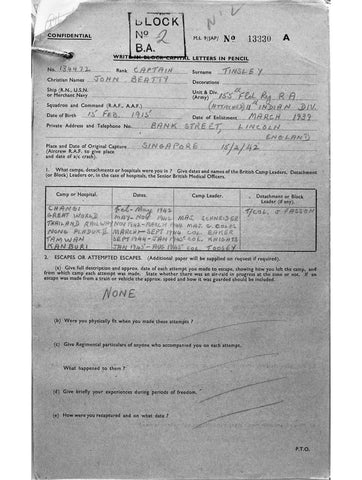 BLOCK
Nº 2
B.A.
CONFIDENTIAL
M.I. 9/JAP/ No 13330 A
WRITE IN BLOCK CAPITAL LETTERS IN PENCIL
No. 134472 Rank CAPTAIN Surname TINSLEY
Christian Names JOHN BEATTY Decorations
Ship (R.N., U.S.N. or Merchant Navy) Unit & Div. (Army) 155th Fld Rg R.A.
Squadron and Command (R.A.F., A.A.F.) (ATTACHED 11th INDIAN DIV.
Date of Birth 15 FEB. 1915 Date of Enlistment MARCH 1939
Private Address and Telephone Number BANK STREET, LINCOLN
ENGLAND
Place and Date of Original Capture SINGAPORE 15/2/42
(Aircrew R.A.F. to give place and date of a/c crash).
1. What camps, detachments or hospitals were you in? Give dates and names of the British Camp Leaders, Detachment (or Block) Leaders or, in case of hospitals, the Senior British Medical Officers.
Camp or Hospital. Dates. Camp Leader. Detachment or Block Leader (if any).
CHANGI Feb - May 1942
GREAT WORLD MAY-NOV 1942 MAJ. SCHNEIDER
THAILAND RAILWAY NOV 1942-MARCH 1944
NONG PLADUK MARCH-SEPT 1944 COL. BAKER
TAMWAN SEPT 1944-JAN 1945 COL KNIGHTS
KANBURI JAN 1945-AUG 1945 COL TOOSEY
2. ESCAPES OR ATTEMPTED ESCAPES. (Additional paper will be supplied on request if required).
(a) Give full description and approx. date of each attempt you made to escape, showing how you left the camp, and from which camp each attempt was made. State whether there was an air-raid in progress at the time or not. If an escape was made from a train or vehicle the approx. speed and how it was guarded should be included.
NONE
(b) Were you physically fit when you made these attempts?
(c) Give Regimental particulars of anyone who accompanied you on each attempt.
What happened to them?
(d) Give briefly your experiences during periods of freedom.
(e) How were you recaptured and on what date?
P.T.O.